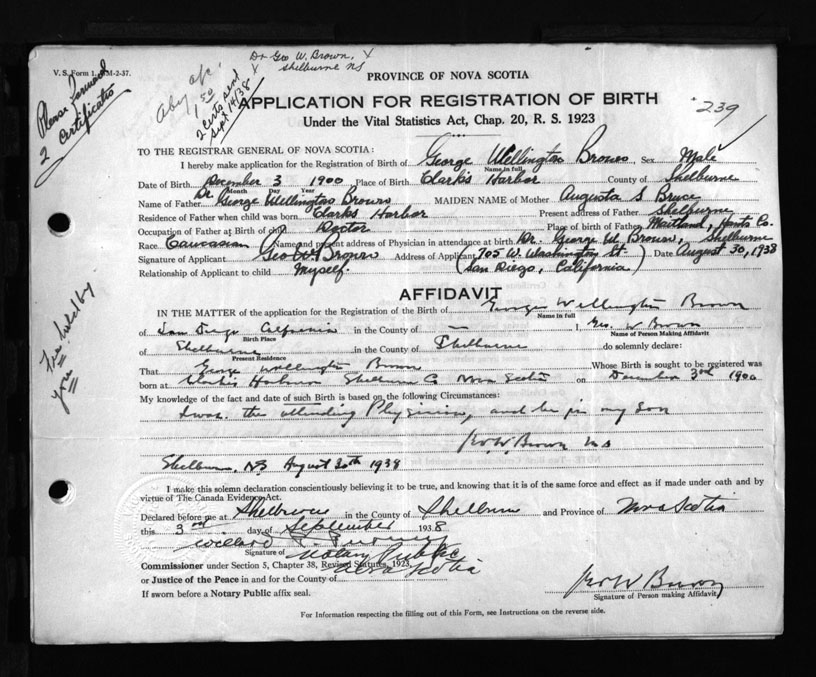 V. S. Form 1. M-2-37.
Please forward
2 certificates
1 50
2 certs sent
Sept 14/38
Dr Geo W. Brown, X
Shelburne NS X
PROVINCE OF NOVA SCOTIA
APPLICATION FOR REGISTRATION OF BIRTH
239
Under the Vital Statistics Act, Chap. 20, R. S. 1923
TO THE REGISTRAR GENERAL OF NOVA SCOTIA:
I hereby make application for the Registration of Birth of George Wellington Brown, Sex Male
Name in full
Date of Birth December 3 1900 Place of Birth Clark's Harbor County of Shelburne
Month Day Year
Name of Father Dr George Wellington Brown MAIDEN NAME of Mother Augusta S Bruce
Residence of Father when child was born Clarks Harbor Present address of Father Shelburne
Occupation of Father at Birth of child Doctor Place of birth of Father Maitland, Hants Co.
Race. Caucasian Name and present address of Physician in attendance at birth Dr. George W. Brown, Shelburne
Signature of Applicant Geo W Brown Address of Applicant 705 W. Washington St. Date August 30, 1938
Relationship of Applicant to child Myself. (San Diego, California)
AFFIDAVIT
IN THE MATTER of the application for the Registration of Birth of George Wellington Brown
Name in full
of San Diego California in the County of — I, Geo. W Brown
Birth Place Name of Person Making Affidavit
of Shelburne in the County of Shelburne do solemnly declare:
Present Residence
That George Wellington Brown Whose Birth is sought to be registered was
born at Clarks Harbour Shelburne Co Nova Scotia on December 3rd 1900
My knowledge of the fact and date of such Birth is based on the following Circumstances:
I was the attending Physician, and he is my Son
Geo W. Brown MD
Shelburne, NS August 30th 1938
Fee held by
you
I make this solemn declaration conscientiously believing it to be true, and knowing that it is of the same force and effect as if made under oath and by
virtue of The Canada Evidence Act.
Declared before me at Shelburne in the County of Shelburne and Province of Nova Scotia
this 3rd day of September 1938
Willard
Signature of Notary Public
Commissioner under Section 5, Chapter 38, Revised Statutes, 1923, Nova Scotia
or Justice of the Peace in and for the County of
If sworn before a Notary Public affix seal.
Geo W Brown
Signature of Person making Affidavit
For Information respecting the filling out of this Form, see Instructions on the reverse side.